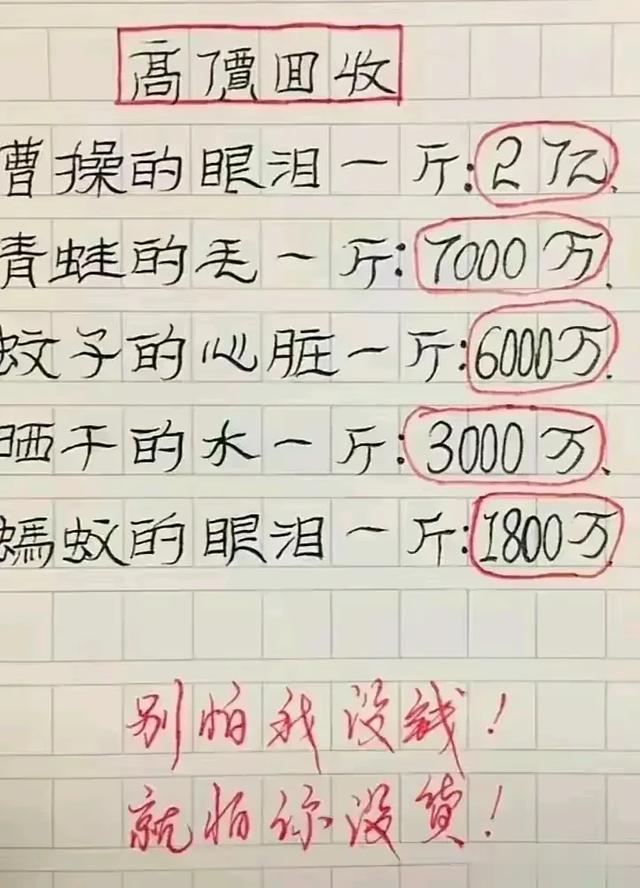 高價回收
曹操的眼泪一斤:2亿.
青蛙的毛一斤:7000万.
蚊子的心脏一斤:6000万.
晒干的水一斤:3000万.
螞蚁的眼泪一斤:1800万.
别怕我没錢!
就怕你没貨!